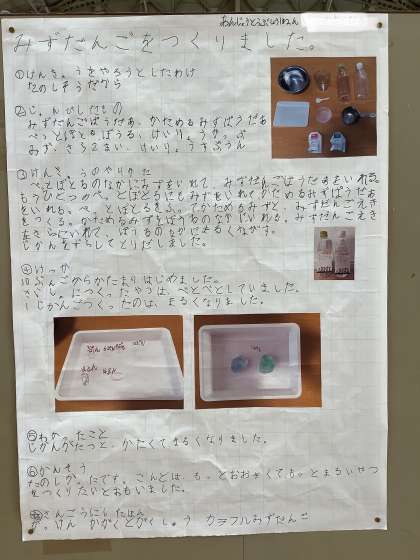 みずだんごをつくりました。
①けんきゅうをやろうとしたわけ
たのしそうだから
②じゅんびしたもの
みずだんごぱうだあ、かためるみずぱうだあ
ぺっとぼとる ぼうる、けいりょうかっぷ
みず、さら2まい、けいりょうすぷうん
③けんきゅうのやりかた
ぺっとぼとるのなかにみずをいれて、みずだんごぱうだあをいれる。
もうひとつのぺっとぼとるにもみずをいれてかためるみずぱうだぁ
をいれる。
をつくる。かためるみずをぼうるのなかにいれる。みずだんごえき
をさらにいれて、ぼうるのなかにまるくながす。
じかんをずらしてとりだしました。
④けっか
10ぷんごからかたまりはじめました。
さいしょにつくったやつは、べとべとしていました。
1じかんごつくったのは、まるくなりました。
⑤わかったこと
じかんがたつと、かたくてまるくなりました。
⑥かんそう
たのしかったです。こんどは、もっとおおきくてもっとまるいやつ
をつくりたいとおもいました。
さんこうにしたほん
がっけん かがくとがくしゅう カラフルみずだんご